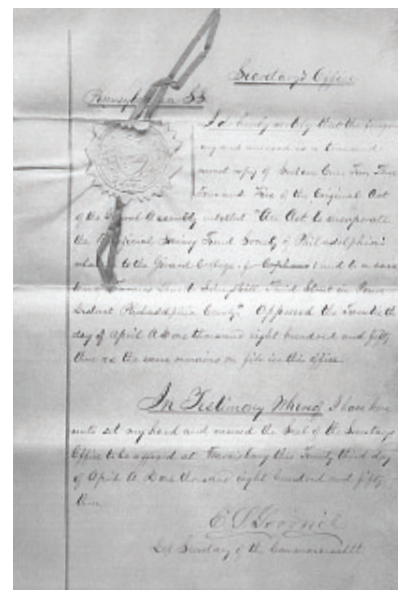 Secretary's Office
Pennsylvania SS
I do hereby certify that the
and annexed is a true and
correct copy of Section One, Two, Three
Four and Five of the Original Act
of the General Assembly entitled "An Act to incorporate
the Saving Fund Society of Philadelphia
to the Girard College for Orphans and to a
Street in
District Philadelphia County" Approved the Twentieth
day of April A D one thousand eight hundred and fifty
three as the same remains on file in this office.
In Testimony Whereof I have here
unto set my hand and caused the Seal of the Secretarys
Office to be affixed at Harrisburg this Twenty third day
of April A. D one thousand eight hundred and fifty
three.
Secretary of the Commonwealth